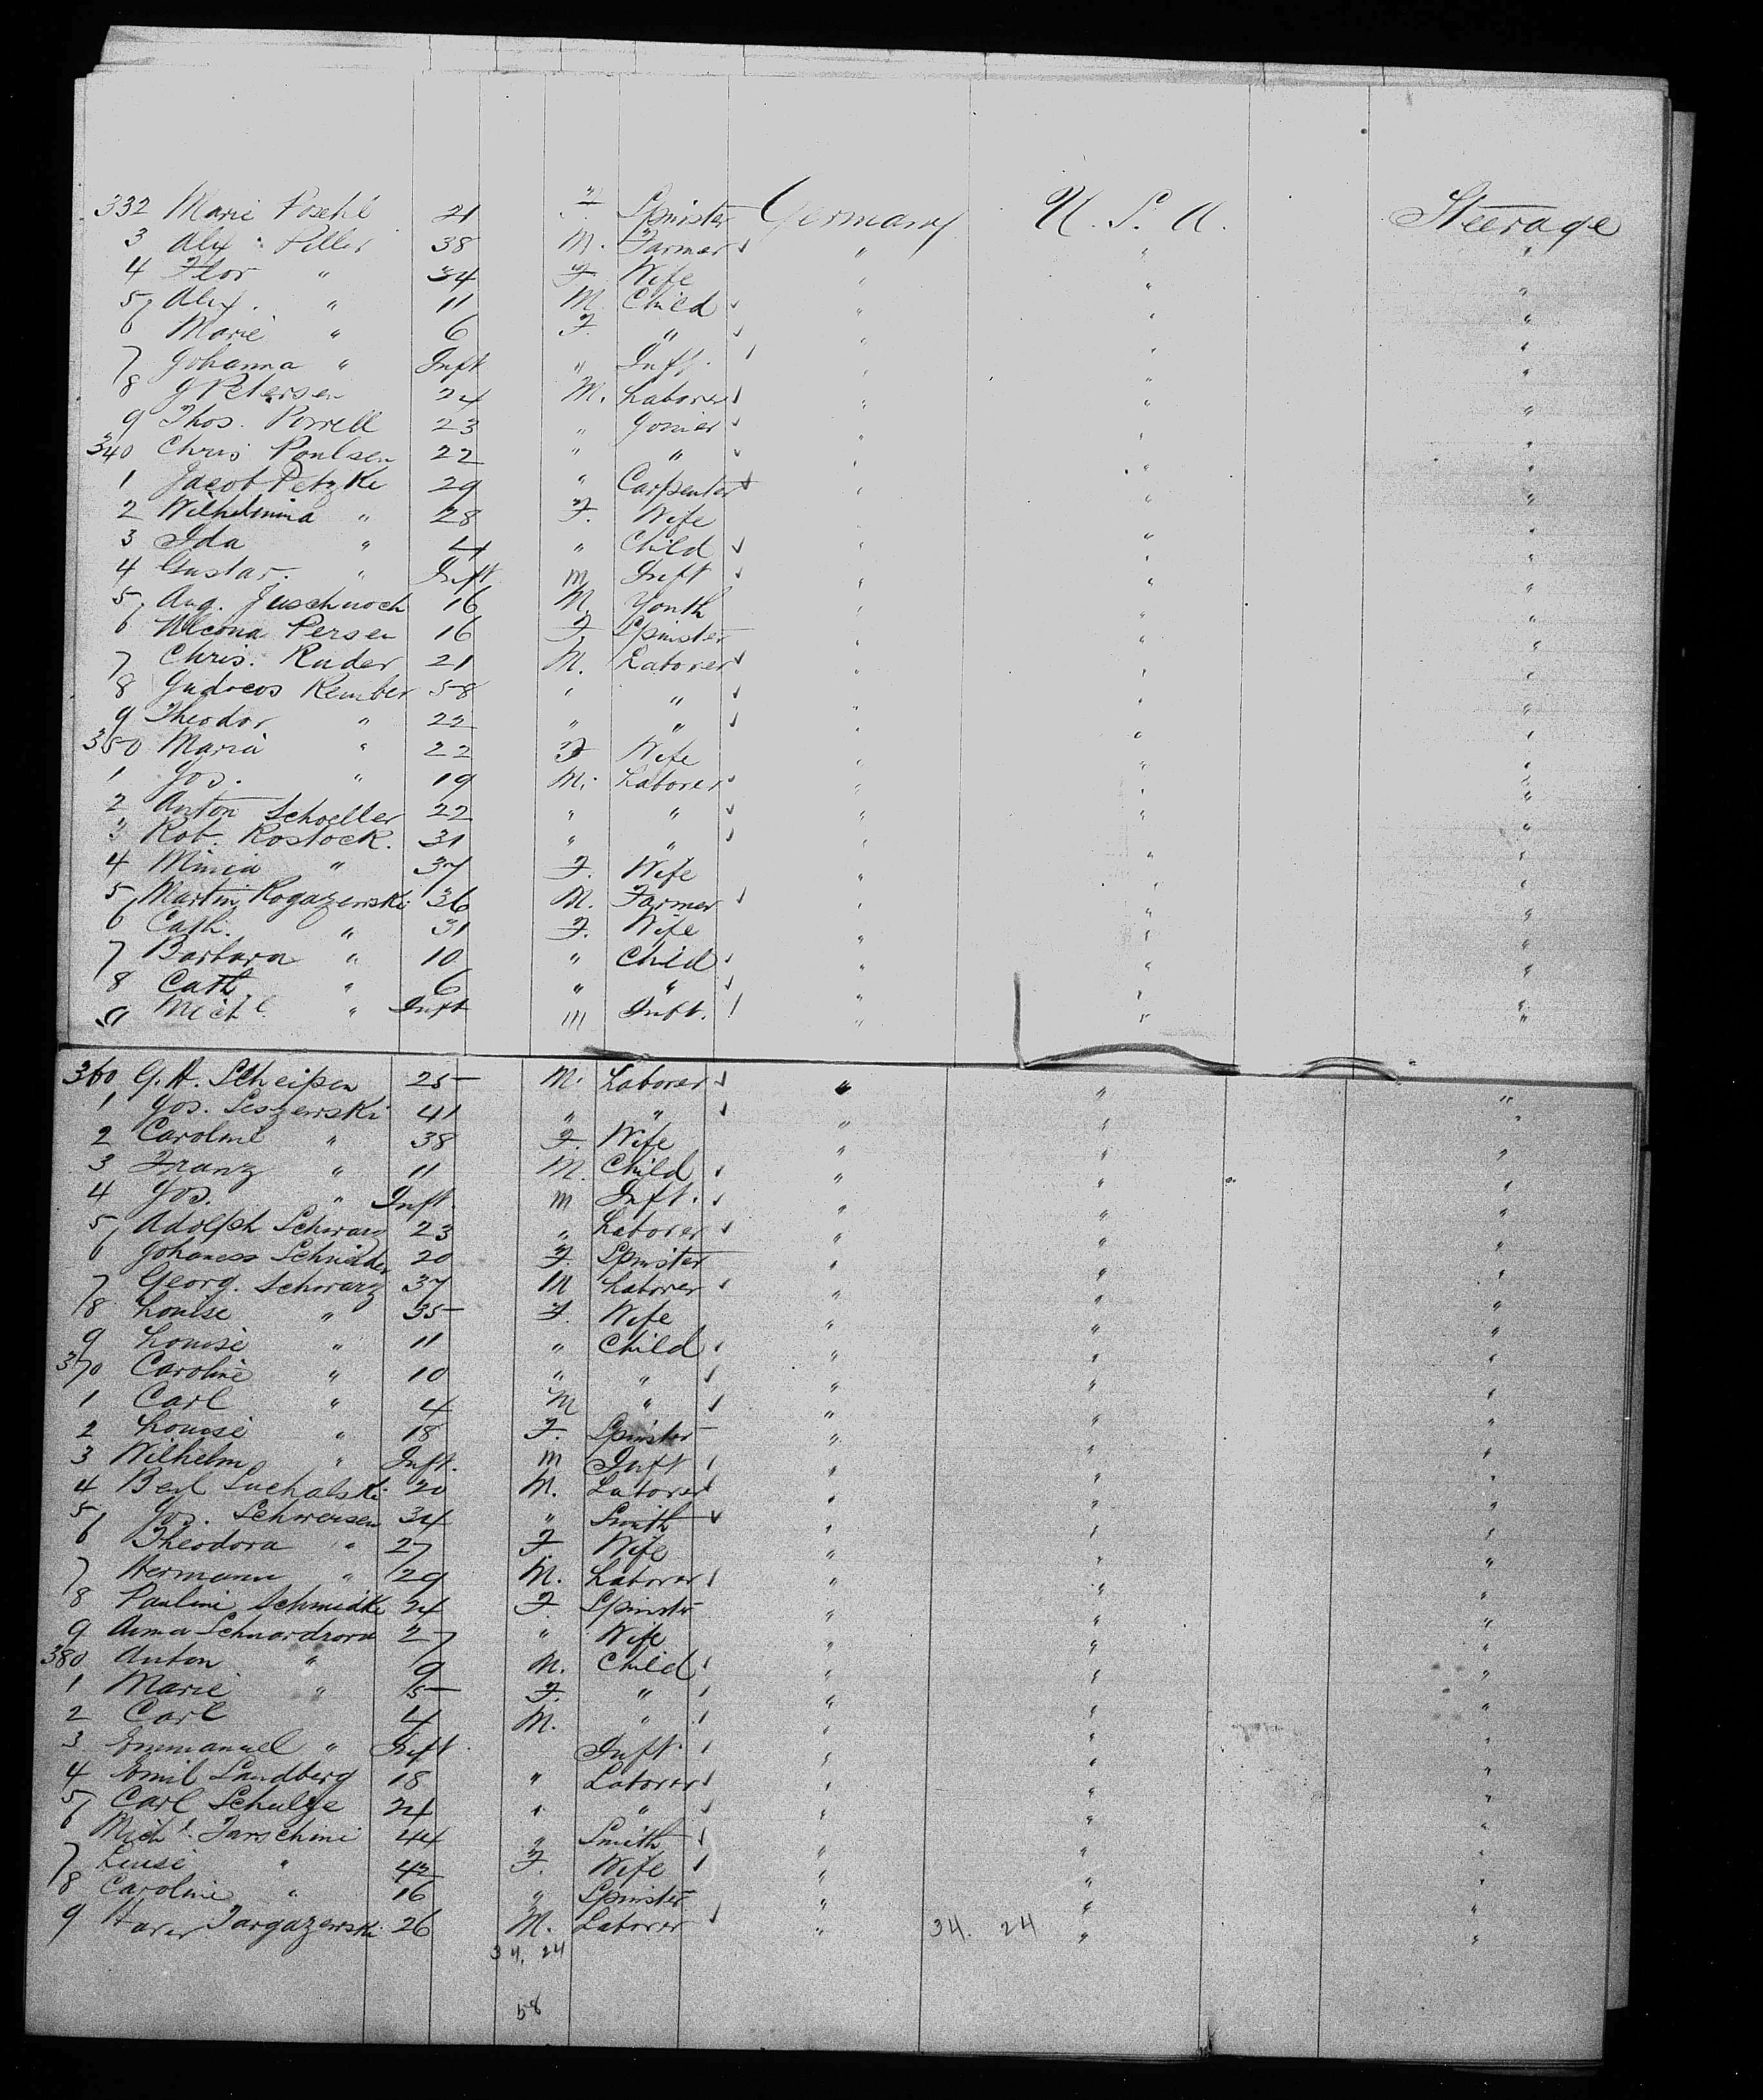 332 Marie Poschl 21 F. Spinster Germany U. S. A. Steerage
3 Alex. Piller 38 M. Farmer " " "
4 Flor " 34 F. Wife " " "
5 Alex. " 11 M. Child " " "
6 Marie " 6 F. " " " "
7 Johanna " Inft " Inft. " " "
8 J Petersen 24 M. Laborer " " "
9 Thos. Porrell 23 " Joiner " " "
340 Chris Poulsen 22 " " " " "
1 Jacob Petzke 29 " Carpenter " " "
2 Wilhelmina " 28 F. Wife " " "
3 Ida " 4 " Child " " "
4 Gustav. " Inft m Inft " " "
5 Aug. Juschnoch 16 M. Youth " " "
6 Persen 16 F. Spinster " " "
7 Chris. Ruder 21 M. Laborer " " "
8 Kember 58 " " " " "
9 Theodor " 22 " " " " "
350 Maria " 22 F. Wife " " "
1 Jos. " 19 M. Laborer " " "
2 Anton Schoeller 22 " " " " "
3 Rob. Rostock. 31 " " " " "
4 " 37 F. Wife " " "
5 Martin Rogazewski 36 M. Farmer " " "
6 Cath. " 31 F. Wife " " "
7 Barbara " 10 " Child " " "
8 Cath " 6 " " " " "
9 Michl. " Inft m Inft. " " "
360 G. A. Scheipen 25 M. Laborer " " "
1 Jos. Seszewski 41 " " " " "
2 Caroline " 38 F. Wife " " "
3 Franz " 11 M. Child " " "
4 Jos. " Inft. m Inft. " " "
5 Adolph Schwarz 23 " Laborer " " "
6 Johaness Schnidder 20 F. Spinster " " "
7 Georg. Schwarz 37 M Laborer " " "
8 Louise " 35 F. Wife " " "
9 Louise " 11 " Child " " "
370 Caroline " 10 " " " " "
1 Carl " 4 M " " " "
2 Louise " 18 F. Spinster " " "
3 Wilhelm " Inft. m Inft " " "
4 Suchalski 20 M. Laborer " " "
5 Jos. Schwensen 34 " Smith " " "
6 Theodora " 27 F Wife " " "
7 Hermann " 29 M. Laborer " " "
8 Pauline Schmidke 24 F. Spinster " " "
9 Anna 27 " Wife " " "
380 Anton " 9 M. Child " " "
1 Marie " 5 F. " " " "
2 Carl 4 M. " " " "
3 Emmanuel " Inft. Inft. " " "
4 Emil Sandberg 18 " Laborer " " "
5 Carl Schulze 24 " " " " "
6 Michl. Tarschini 44 " Smith " " "
7 " 42 F. Wife " " "
8 Caroline " 16 " Spinster " " "
9 Targazewski 26 M. Laborer " 34. 24 " "
34. 24
58